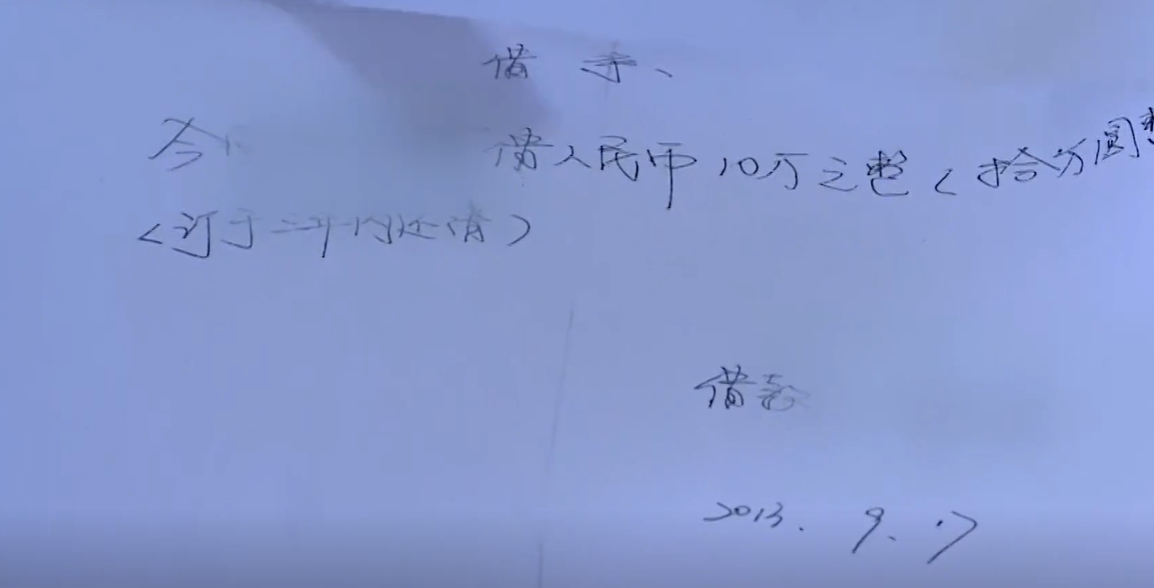 借 字、
今 借人民币10万之整（拾万圆整
（订于二年内还清）
借款
2013. 9. 17